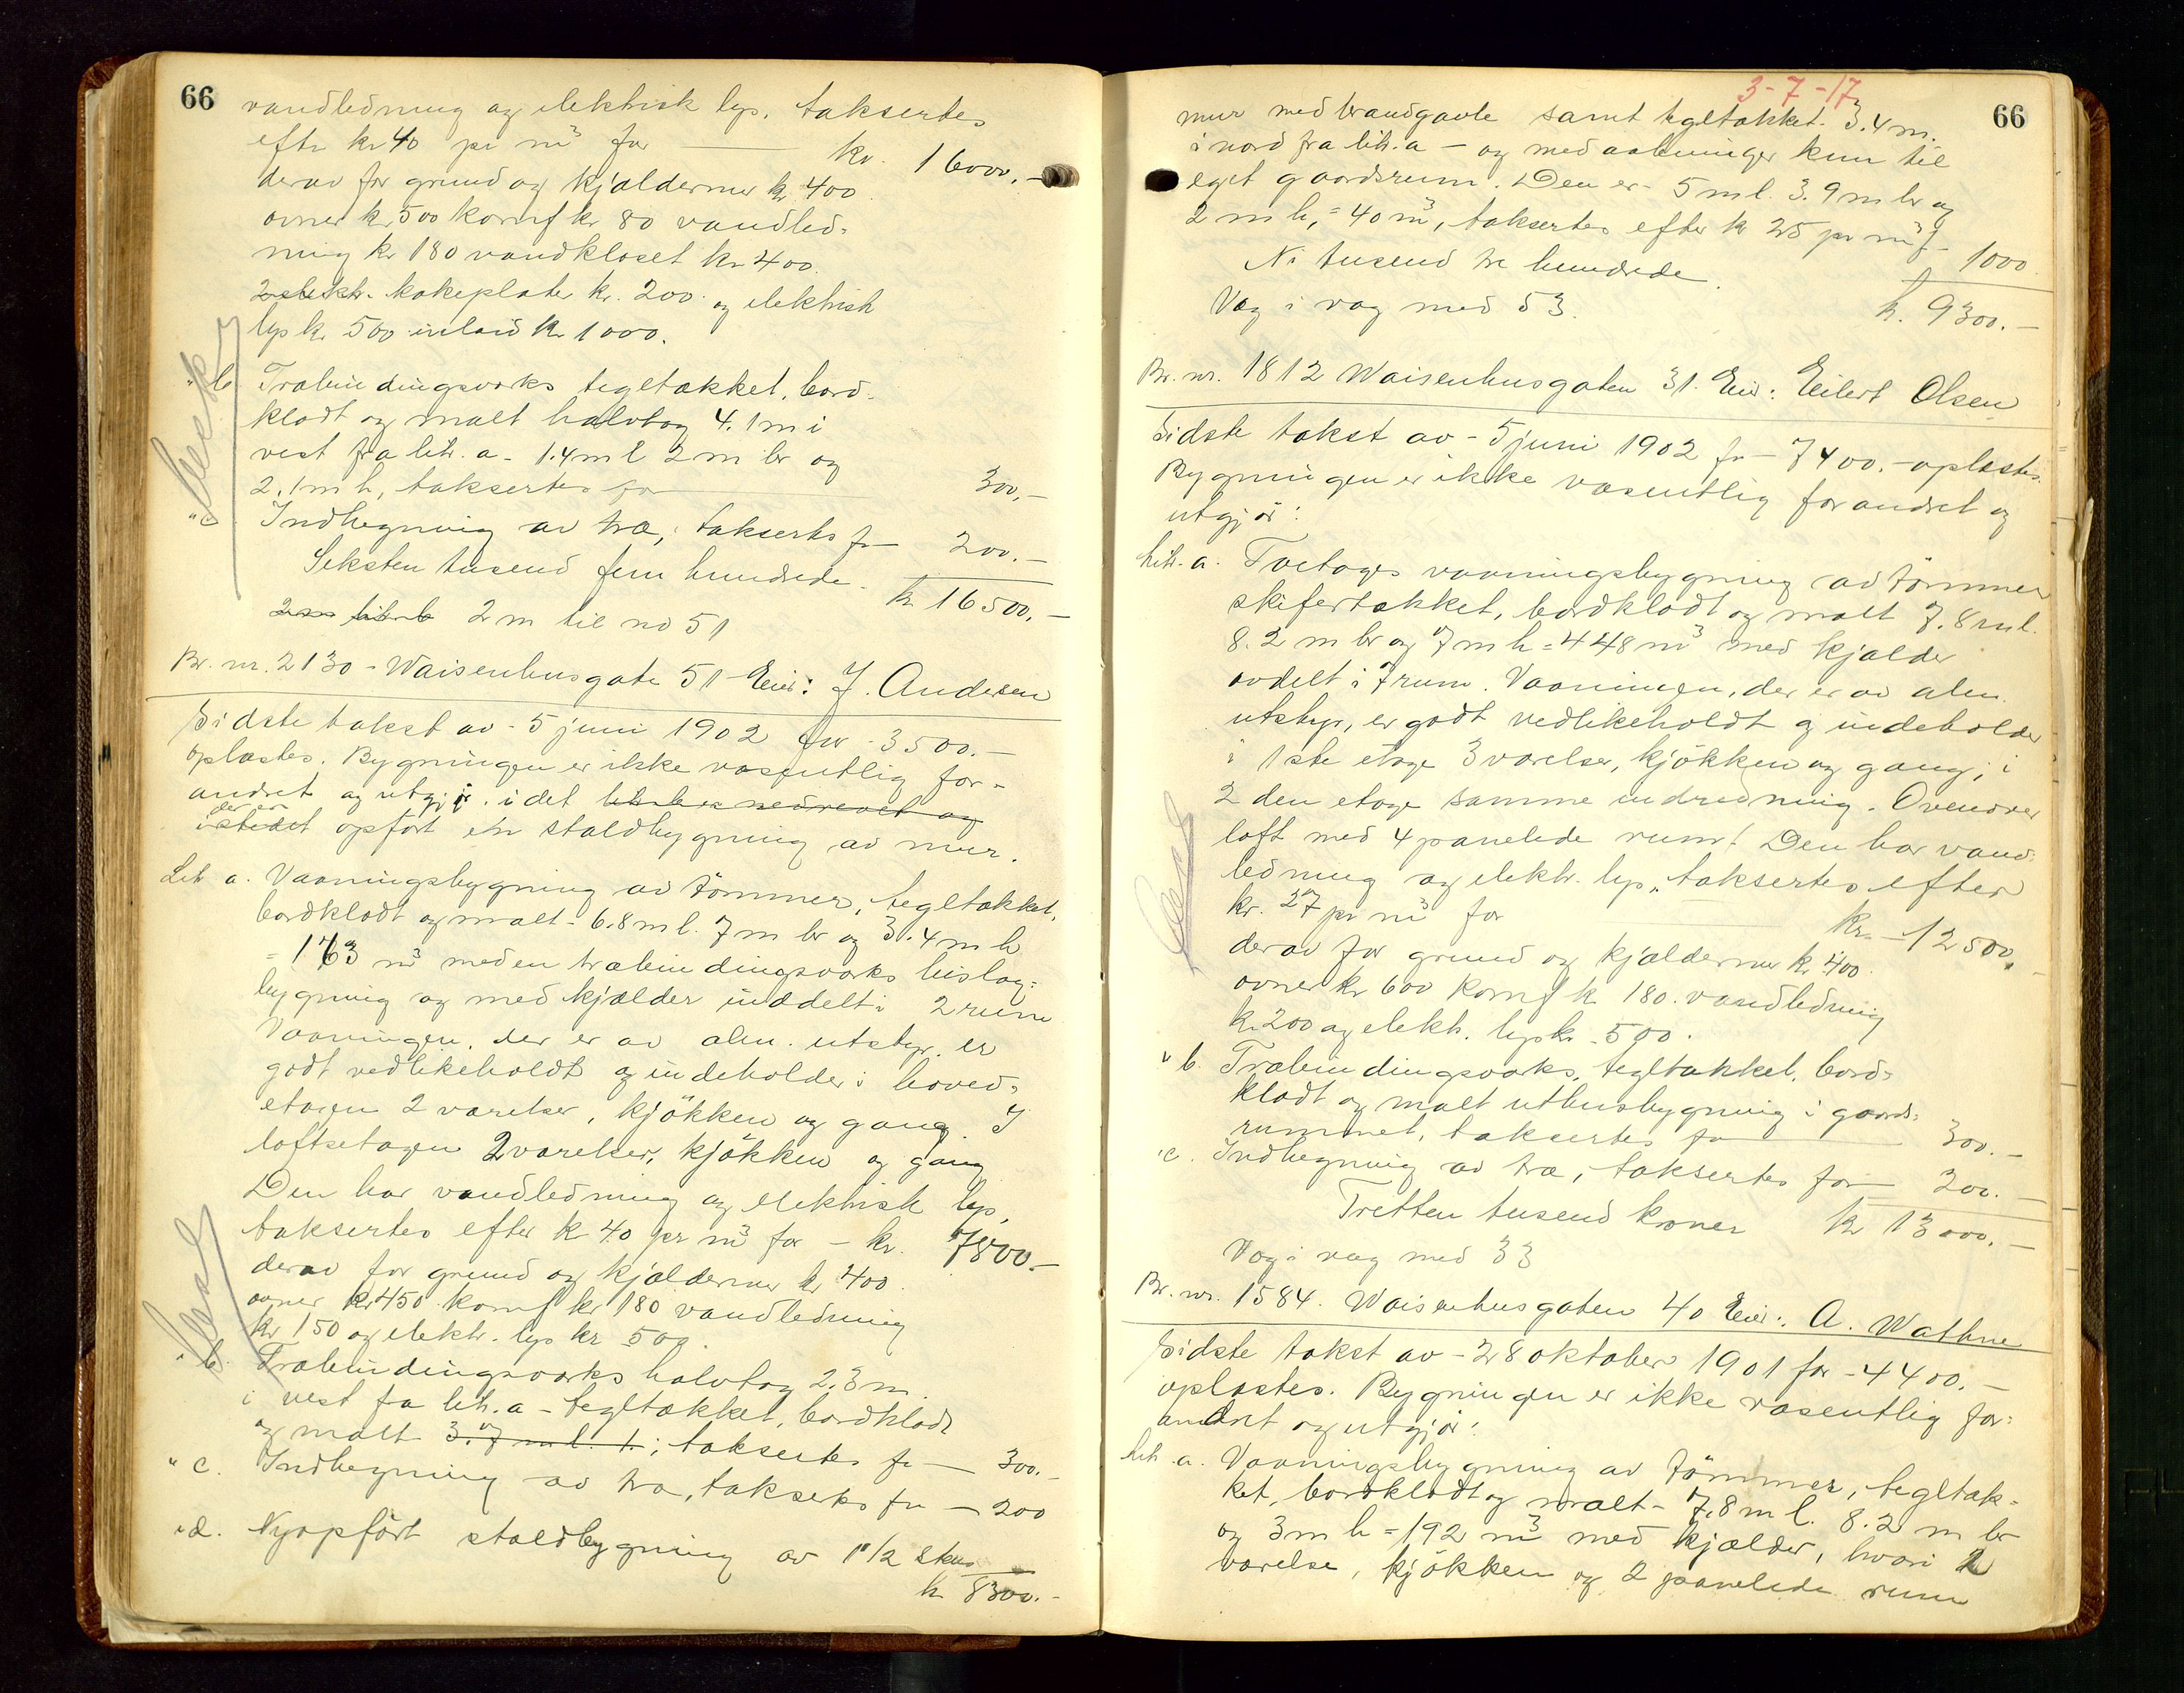 66
vandledning og elektrisk lys, taksertes
efter kr 40 pr m³ for kr. 16000.-
derav for grund og kjældermur kr 400
ovner kr 500 komf kr 80 vandled-
ning kr 180 vandkloset kr 400.
2 elektr. kokeplater kr. 200. og elektrisk
lys kr 500 inlaid kr 1000.
" b Træbindingsverks tegltækket, bord-
klædt og malt halvtag 4.1 m i
vest fra litr. a - 1.4 m l 2 m br og
2.1 m h, taksertes for 300.-
" c. Indhegning av træ, taksertes for 200.-
Seksten tusend fem hundrede. kr 16500.-
2 m litr b 2 m til no 51
Br. nr. 2130 - Waisenhusgate 51 Eier: J. Andersen
Sidste takst av - 5 juni 1902 for - 3500.-
oplæstes. Bygningen er ikke væsentlig for-
andret og utgjør. i det litr. b er nedrevet og
der er
istedet opført en staldbygning av mur.
Litr a. Vaaningsbygning av tømmer, tegltækket,
bordklædt og malt - 6.8 m l. 7 m br og 3.4 m h
= 163 m³ med en træbindingsverks bislag-
bygning og med kjælder inddelt i 2 rum
Vaaningen, der er av alm. utstyr, er
godt vedlikeholdt og indeholder i hoved-
etagen 2 værelser, kjøkken og gang. I
loftsetagen 2 værelser, kjøkken og gang
Den har vandledning og elektrisk lys,
taksertes efter kr 40 pr m³ for - kr. 7800.-
derav for grund og kjældermur kr 400
ovner kr 450 komf kr 180 vandledning
kr 150 og elektr. lys kr 500.
" b. Træbindingsverks halvtag 2.3 m.
i vest fra litr. a - tegltækket, bordklædt
og malt 3.7 m l. 1.; taksertes for - 300.-
" c. Indhegning av træ, taksertes for - 200
" d. Nyopført staldbygning av 1 1/2 stens
kr 8300.-
3-7-17
66
mur med brandgavle samt tegltækket. 3.4 m.
i nord fra litr. a - og med aabninger kun til
eget gaardsrum. Den er 5 m l. 3.9 m br og
2 m h, = 40 m³, taksertes efter kr 25 pr m³ f. 1000
Ni tusend tre hundrede. kr. 9300.-
Væg i væg med 53.
Br. nr. 1812 Waisenhusgaten 31. Eier: Eilert Olsen
Sidste takst av - 5 juni 1902 for - 7400.- oplæstes.
Bygningen er ikke væsentlig forandret og
utgjør:
Litr. a. Toetages vaaningsbygning av tømmer
skifertækket, bordklædt og malt 7.8 m l.
8.2 m br og 7 m h = 448 m³ med kjælder
avdelt i 7 rum. Vaaningen, der er av alm.
utstyr, er godt vedlikeholdt og indeholder
i 1ste etage 3 værelser, kjøkken og gang; i
2den etage samme indredning. Ovenover
loft med 4 panelede rum. Den har vand-
ledning og elektr. lys, taksertes efter
kr. 27 pr m³ for kr. - 12500.-
derav for grund og kjældermur kr 400.
ovner kr 600 komf kr 180. vandledning
kr 200 og elektr. lys kr. 500.
" b. Træbindingsverks, tegltækket, bord-
klædt og malt uthusbygning i gaards-
rummet, taksertes for 300.-
" c. Indhegning av træ, taksertes for 200.-
Tretten tusend kroner kr 13000.-
Væg i væg med 33
Br. nr. 1584. Waisenhusgaten 40 Eier: A. Wathne
Sidste takst av - 28 oktober 1901 for - 4400.-
oplæstes. Bygningen er ikke væsentlig for-
andret og utgjør:
Litr. a. Vaaningsbygning av tømmer, tegltæk-
ket, bordklædt og malt - 7.8 m l. 8.2 m br
og 3 m h = 192 m³ med kjælder, hvori 2
værelse, kjøkken og 2 panelede rum